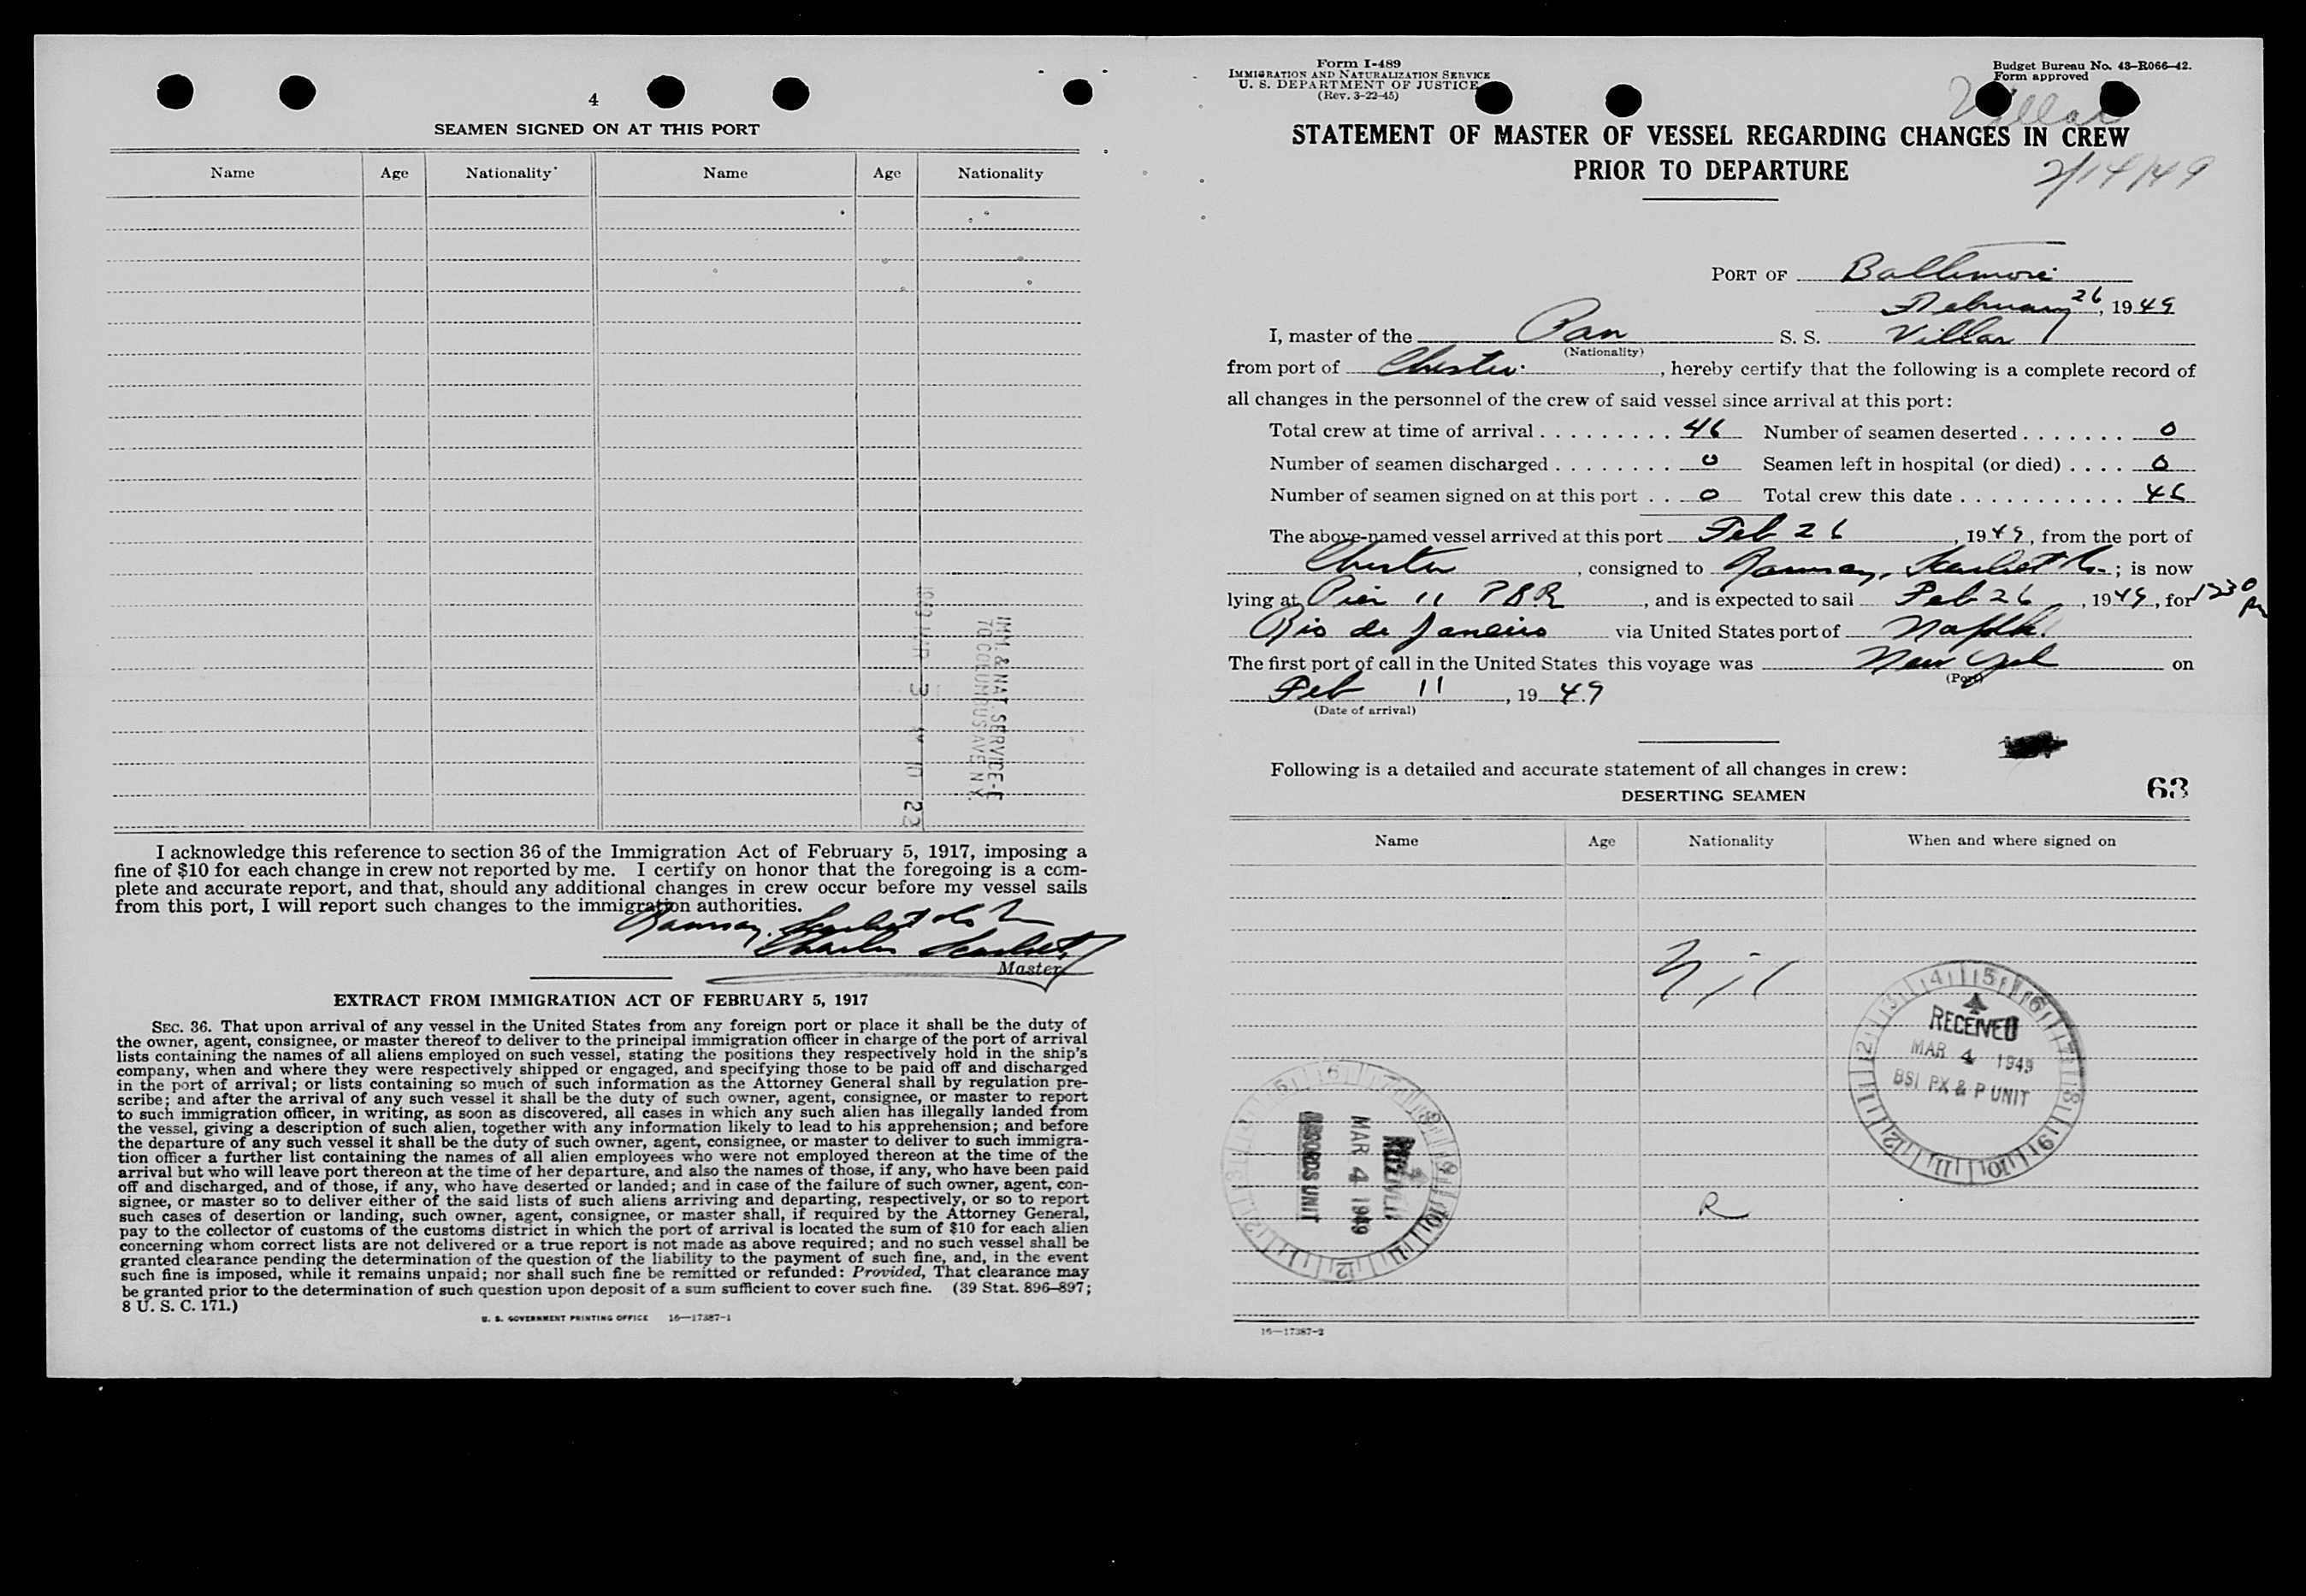 4
SEAMEN SIGNED ON AT THIS PORT
Name Age Nationality Name Age Nationality
IMM. & NAT. SERVICE-
70 COLUMBUS AVE N.Y.
I acknowledge this reference to section 36 of the Immigration Act of February 5, 1917, imposing a
fine of $10 for each change in crew not reported by me. I certify on honor that the foregoing is a com-
plete and accurate report, and that, should any additional changes in crew occur before my vessel sails
from this port, I will report such changes to the immigration authorities.
Ramsay, Scarlett Co
Charles Scarlett
Master
EXTRACT FROM IMMIGRATION ACT OF FEBRUARY 5, 1917
SEC. 36. That upon arrival of any vessel in the United States from any foreign port or place it shall be the duty of
the owner, agent, consignee, or master thereof to deliver to the principal immigration officer in charge of the port of arrival
lists containing the names of all aliens employed on such vessel, stating the positions they respectively hold in the ship's
company, when and where they were respectively shipped or engaged, and specifying those to be paid off and discharged
in the port of arrival; or lists containing so much of such information as the Attorney General shall by regulation pre-
scribe; and after the arrival of any such vessel it shall be the duty of such owner, agent, consignee, or master to report
to such immigration officer, in writing, as soon as discovered, all cases in which any such alien has illegally landed from
the vessel, giving a description of such alien, together with any information likely to lead to his apprehension; and before
the departure of any such vessel it shall be the duty of such owner, agent, consignee, or master to deliver to such immigra-
tion officer a further list containing the names of all alien employees who were not employed thereon at the time of the
arrival but who will leave port thereon at the time of her departure, and also the names of those, if any, who have been paid
off and discharged, and of those, if any, who have deserted or landed; and in case of the failure of such owner, agent, con-
signee, or master so to deliver either of the said lists of such aliens arriving and departing, respectively, or so to report
such cases of desertion or landing, such owner, agent, consignee, or master shall, if required by the Attorney General,
pay to the collector of customs of the customs district in which the port of arrival is located the sum of $10 for each alien
concerning whom correct lists are not delivered or a true report is not made as above required; and no such vessel shall be
granted clearance pending the determination of the question of the liability to the payment of such fine, and, in the event
such fine is imposed, while it remains unpaid; nor shall such fine be remitted or refunded: Provided, That clearance may
be granted prior to the determination of such question upon deposit of a sum sufficient to cover such fine. (39 Stat. 896–897;
8 U. S. C. 171.)
U. S. GOVERNMENT PRINTING OFFICE 16—17387-1
Form I-489
IMMIGRATION AND NATURALIZATION SERVICE
U. S. DEPARTMENT OF JUSTICE
(Rev. 3-22-45)
Budget Bureau No. 43–R066–42.
Form approved
Villar
STATEMENT OF MASTER OF VESSEL REGARDING CHANGES IN CREW
PRIOR TO DEPARTURE
2/14/49
PORT OF Baltimore
February 26, 1949
I, master of the Pan S. S. Villar
(Nationality)
from port of Chester, hereby certify that the following is a complete record of
all changes in the personnel of the crew of said vessel since arrival at this port:
Total crew at time of arrival 46 Number of seamen deserted 0
Number of seamen discharged 0 Seamen left in hospital (or died) 0
Number of seamen signed on at this port 0 Total crew this date 46
The above-named vessel arrived at this port Feb 26, 1949, from the port of
Chester, consigned to Ramsay, Scarlett Co.; is now
lying at Pier 11 PRR, and is expected to sail Feb 26, 1949, for 1230 PM
Rio de Janeiro via United States port of Noflk.
The first port of call in the United States this voyage was New York on
(Port)
Feb 11, 1949
(Date of arrival)
Following is a detailed and accurate statement of all changes in crew:
63
DESERTING SEAMEN
Name Age Nationality When and where signed on
Nil
RECEIVED
MAR 4 1949
BSI PX & P UNIT
MAR 4 1949
RECORDS UNIT
R
16—17387-2